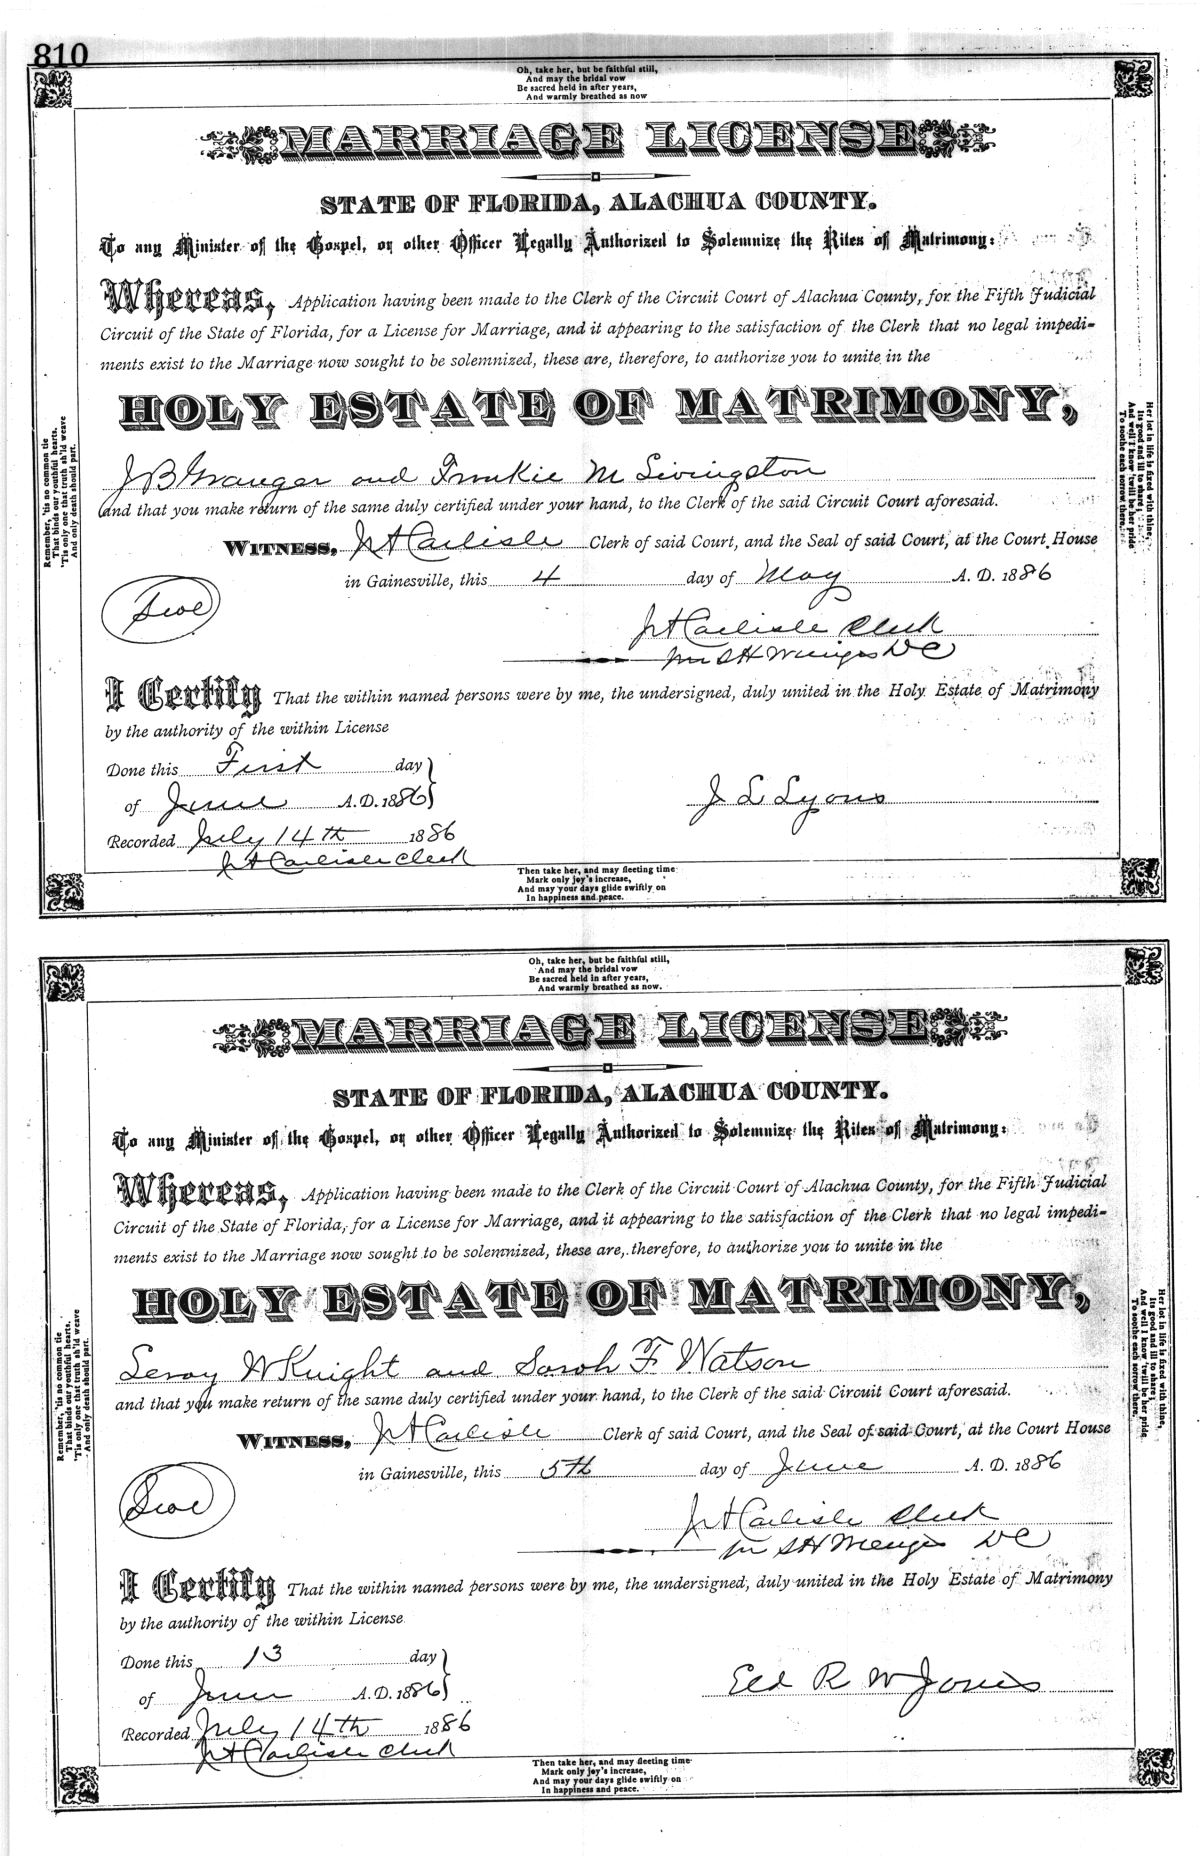 810
Oh, take her, but be faithful still,
And may the bridal vow
Be sacred held in after years,
And warmly breathed as now
MARRIAGE LICENSE
STATE OF FLORIDA, ALACHUA COUNTY.
To any Minister of the Gospel, or other Officer Legally Authorized to Solemnize the Rites of Matrimony:
Whereas, Application having been made to the Clerk of the Circuit Court of Alachua County, for the Fifth Judicial
Circuit of the State of Florida, for a License for Marriage, and it appearing to the satisfaction of the Clerk that no legal impedi-
ments exist to the Marriage now sought to be solemnized, these are, therefore, to authorize you to unite in the
HOLY ESTATE OF MATRIMONY,
J B Granger and Frankie M Livingston
and that you make return of the same duly certified under your hand, to the Clerk of the said Circuit Court aforesaid.
WITNESS, J A Carlisle Clerk of said Court, and the Seal of said Court, at the Court House
in Gainesville, this 4 day of May A. D. 1886
Seal
J A Carlisle Clerk
per S H Wienges DC
I Certify That the within named persons were by me, the undersigned, duly united in the Holy Estate of Matrimony
by the authority of the within License
Done this First day
of June A.D. 1886
J L Lyons
Recorded July 14th 1886
J A Carlisle Clerk
Then take her, and may fleeting time
Mark only joy's increase,
And may your days glide swiftly on
In happiness and peace.
Remember, 'tis no common tie
That binds our youthful hearts,
'Tis only one that truth sh'ld weave
And only death should part.
Her lot in life is fixed with thine,
Its good and ill to share;
And well I know 'twill be her pride
To soothe each sorrow there.
Oh, take her, but be faithful still,
And may the bridal vow
Be sacred held in after years,
And warmly breathed as now.
MARRIAGE LICENSE
STATE OF FLORIDA, ALACHUA COUNTY.
To any Minister of the Gospel, or other Officer Legally Authorized to Solemnize the Rites of Matrimony:
Whereas, Application having been made to the Clerk of the Circuit Court of Alachua County, for the Fifth Judicial
Circuit of the State of Florida, for a License for Marriage, and it appearing to the satisfaction of the Clerk that no legal impedi-
ments exist to the Marriage now sought to be solemnized, these are, therefore, to authorize you to unite in the
HOLY ESTATE OF MATRIMONY,
Leroy W Knight and Sarah F. Watson
and that you make return of the same duly certified under your hand, to the Clerk of the said Circuit Court aforesaid.
WITNESS, J A Carlisle Clerk of said Court, and the Seal of said Court, at the Court House
in Gainesville, this 5th day of June A. D. 1886
Seal
J A Carlisle Clerk
per S H Wienges DC
I Certify That the within named persons were by me, the undersigned, duly united in the Holy Estate of Matrimony
by the authority of the within License
Done this 13 day
of June A.D. 1886
Eld R W Jones
Recorded July 14th 1886
J A Carlisle Clerk
Then take her, and may fleeting time
Mark only joy's increase,
And may your days glide swiftly on
In happiness and peace.
Remember, 'tis no common tie
That binds our youthful hearts.
'Tis only one that truth sh'ld weave
And only death should part.
Her lot in life is fixed with thine,
Its good and ill to share;
And well I know 'twill be her pride
To soothe each sorrow there.